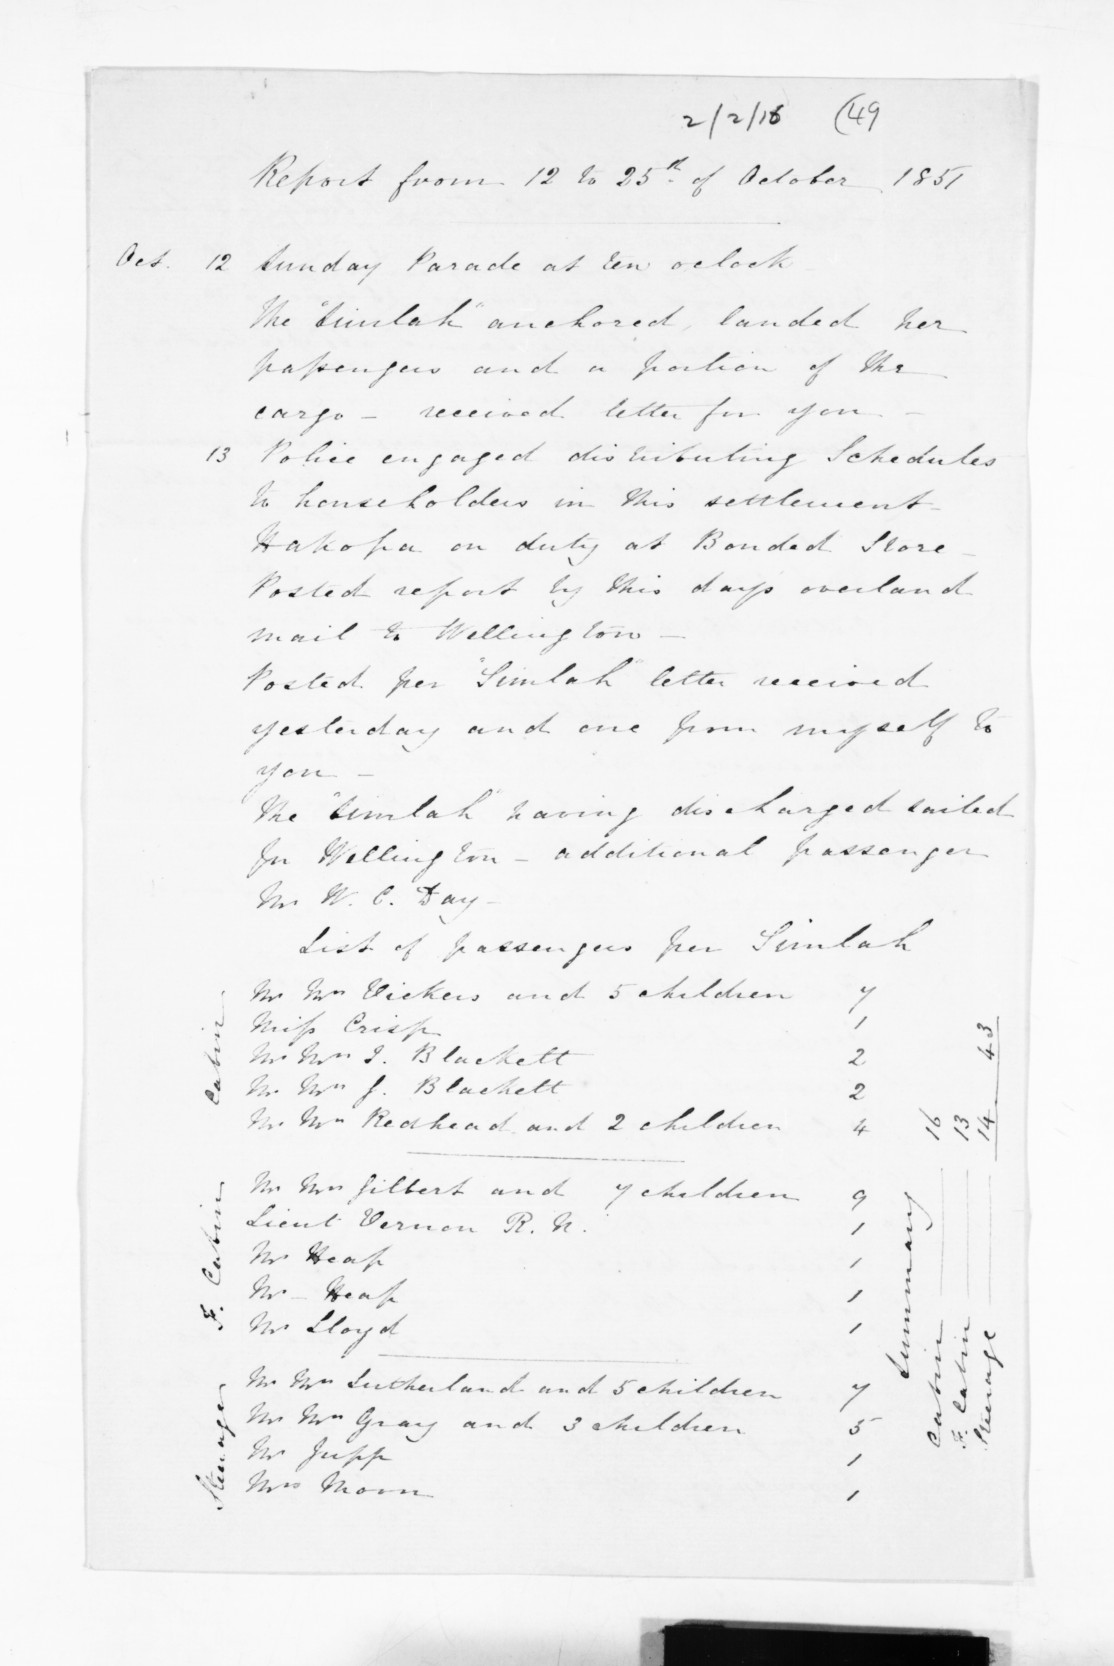 2/2/16 (49
Report from 12 to 25th of October 1851
Oct. 12 Sunday Parade at ten oclock
The "Simlah" anchored, landed her
passengers and a portion of the
cargo - received letter for you -
13 Police engaged distributing Schedules
to householders in this settlement -
Hakopa on duty at Bonded Store -
Posted report by this days overland
mail to Wellington -
Posted per "Simlah" letter received
yesterday and one from myself to
you -
The "Simlah" having discharged sailed
for Wellington - additional passenger
Mr W. C. Day -
List of passengers per Simlah
Cabin
Mr Mrs Vickers and 5 children 7
Miss Crisp 1
Mr Mrs I. Blackett 2
Mr Mrs J. Blackett 2
Mr Mrs Redhead and 2 children 4
F. Cabin
Mr Mrs Gilbert and 7 children 9
Lieut Vernon R. N. 1
Mr Heap 1
Mr - Heap 1
Mr Lloyd 1
Steerage
Mr Mrs Sutherland and 5 children 7
Mr Mrs Gray and 3 children 5
Mr Jupp 1
Mrs Moon 1
Summary
Cabin 16
F. Cabin 13
Steerage 14 43